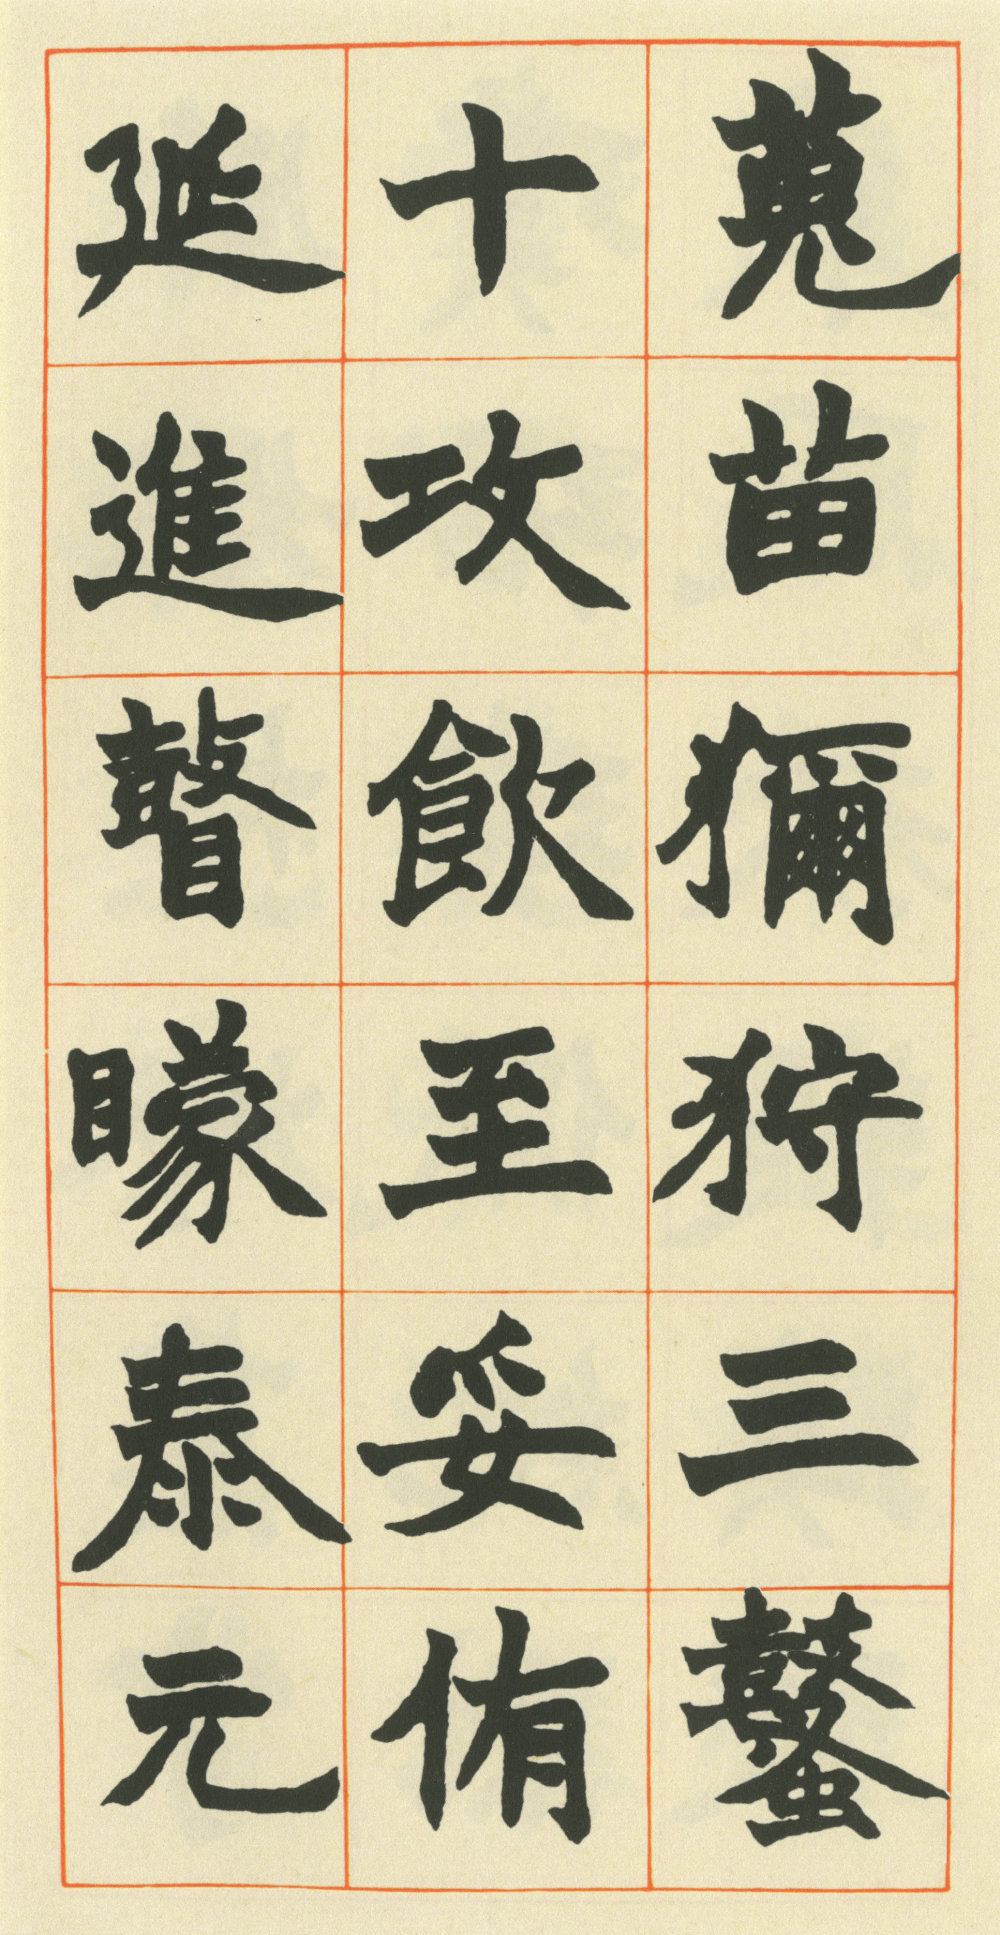 蒐苗獮狩三鼜
十攻飲至妥侑
延進瞽矇泰元